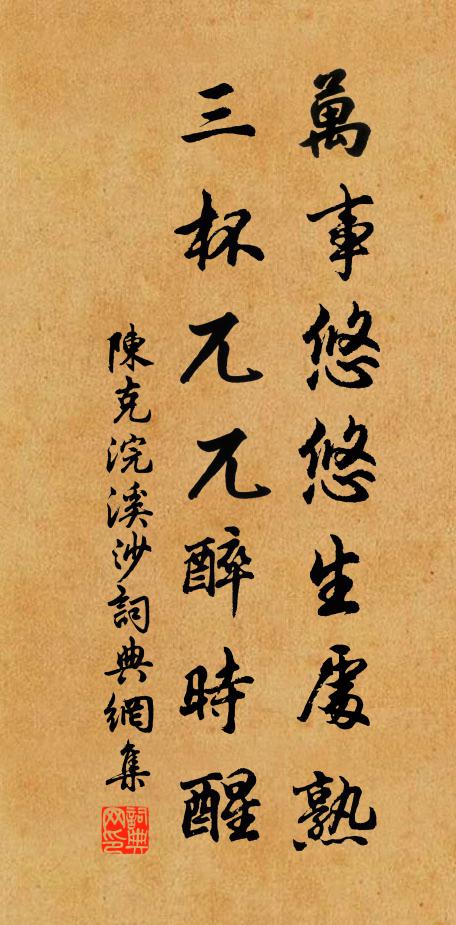 萬事悠悠生處熟
三杯兀兀醉時醒
陳克浣溪沙詞典網集
詞典網印